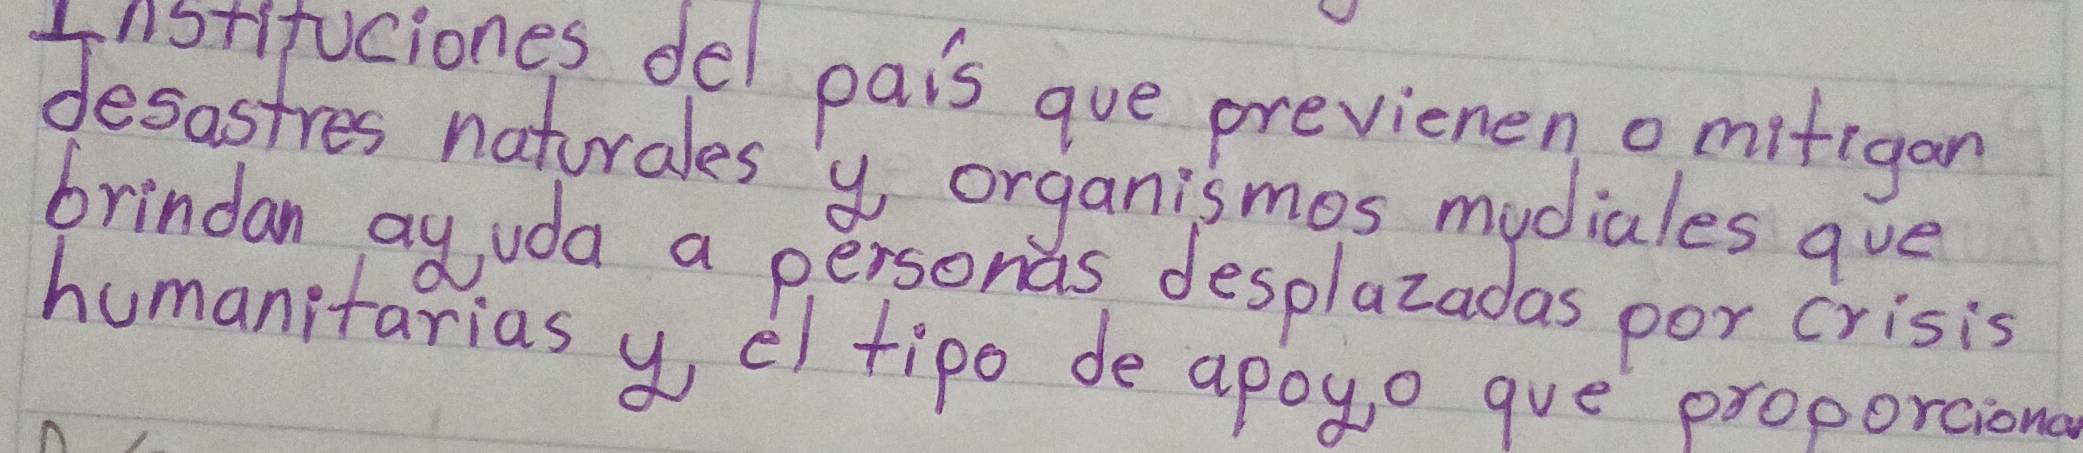 Instituciones del país que previenen o mitigan
desastres naturales y organismos mudiales que
brindan ayuda a personas desplazadas por crisis
humanitarias y el tipo de apoyo que proporciona